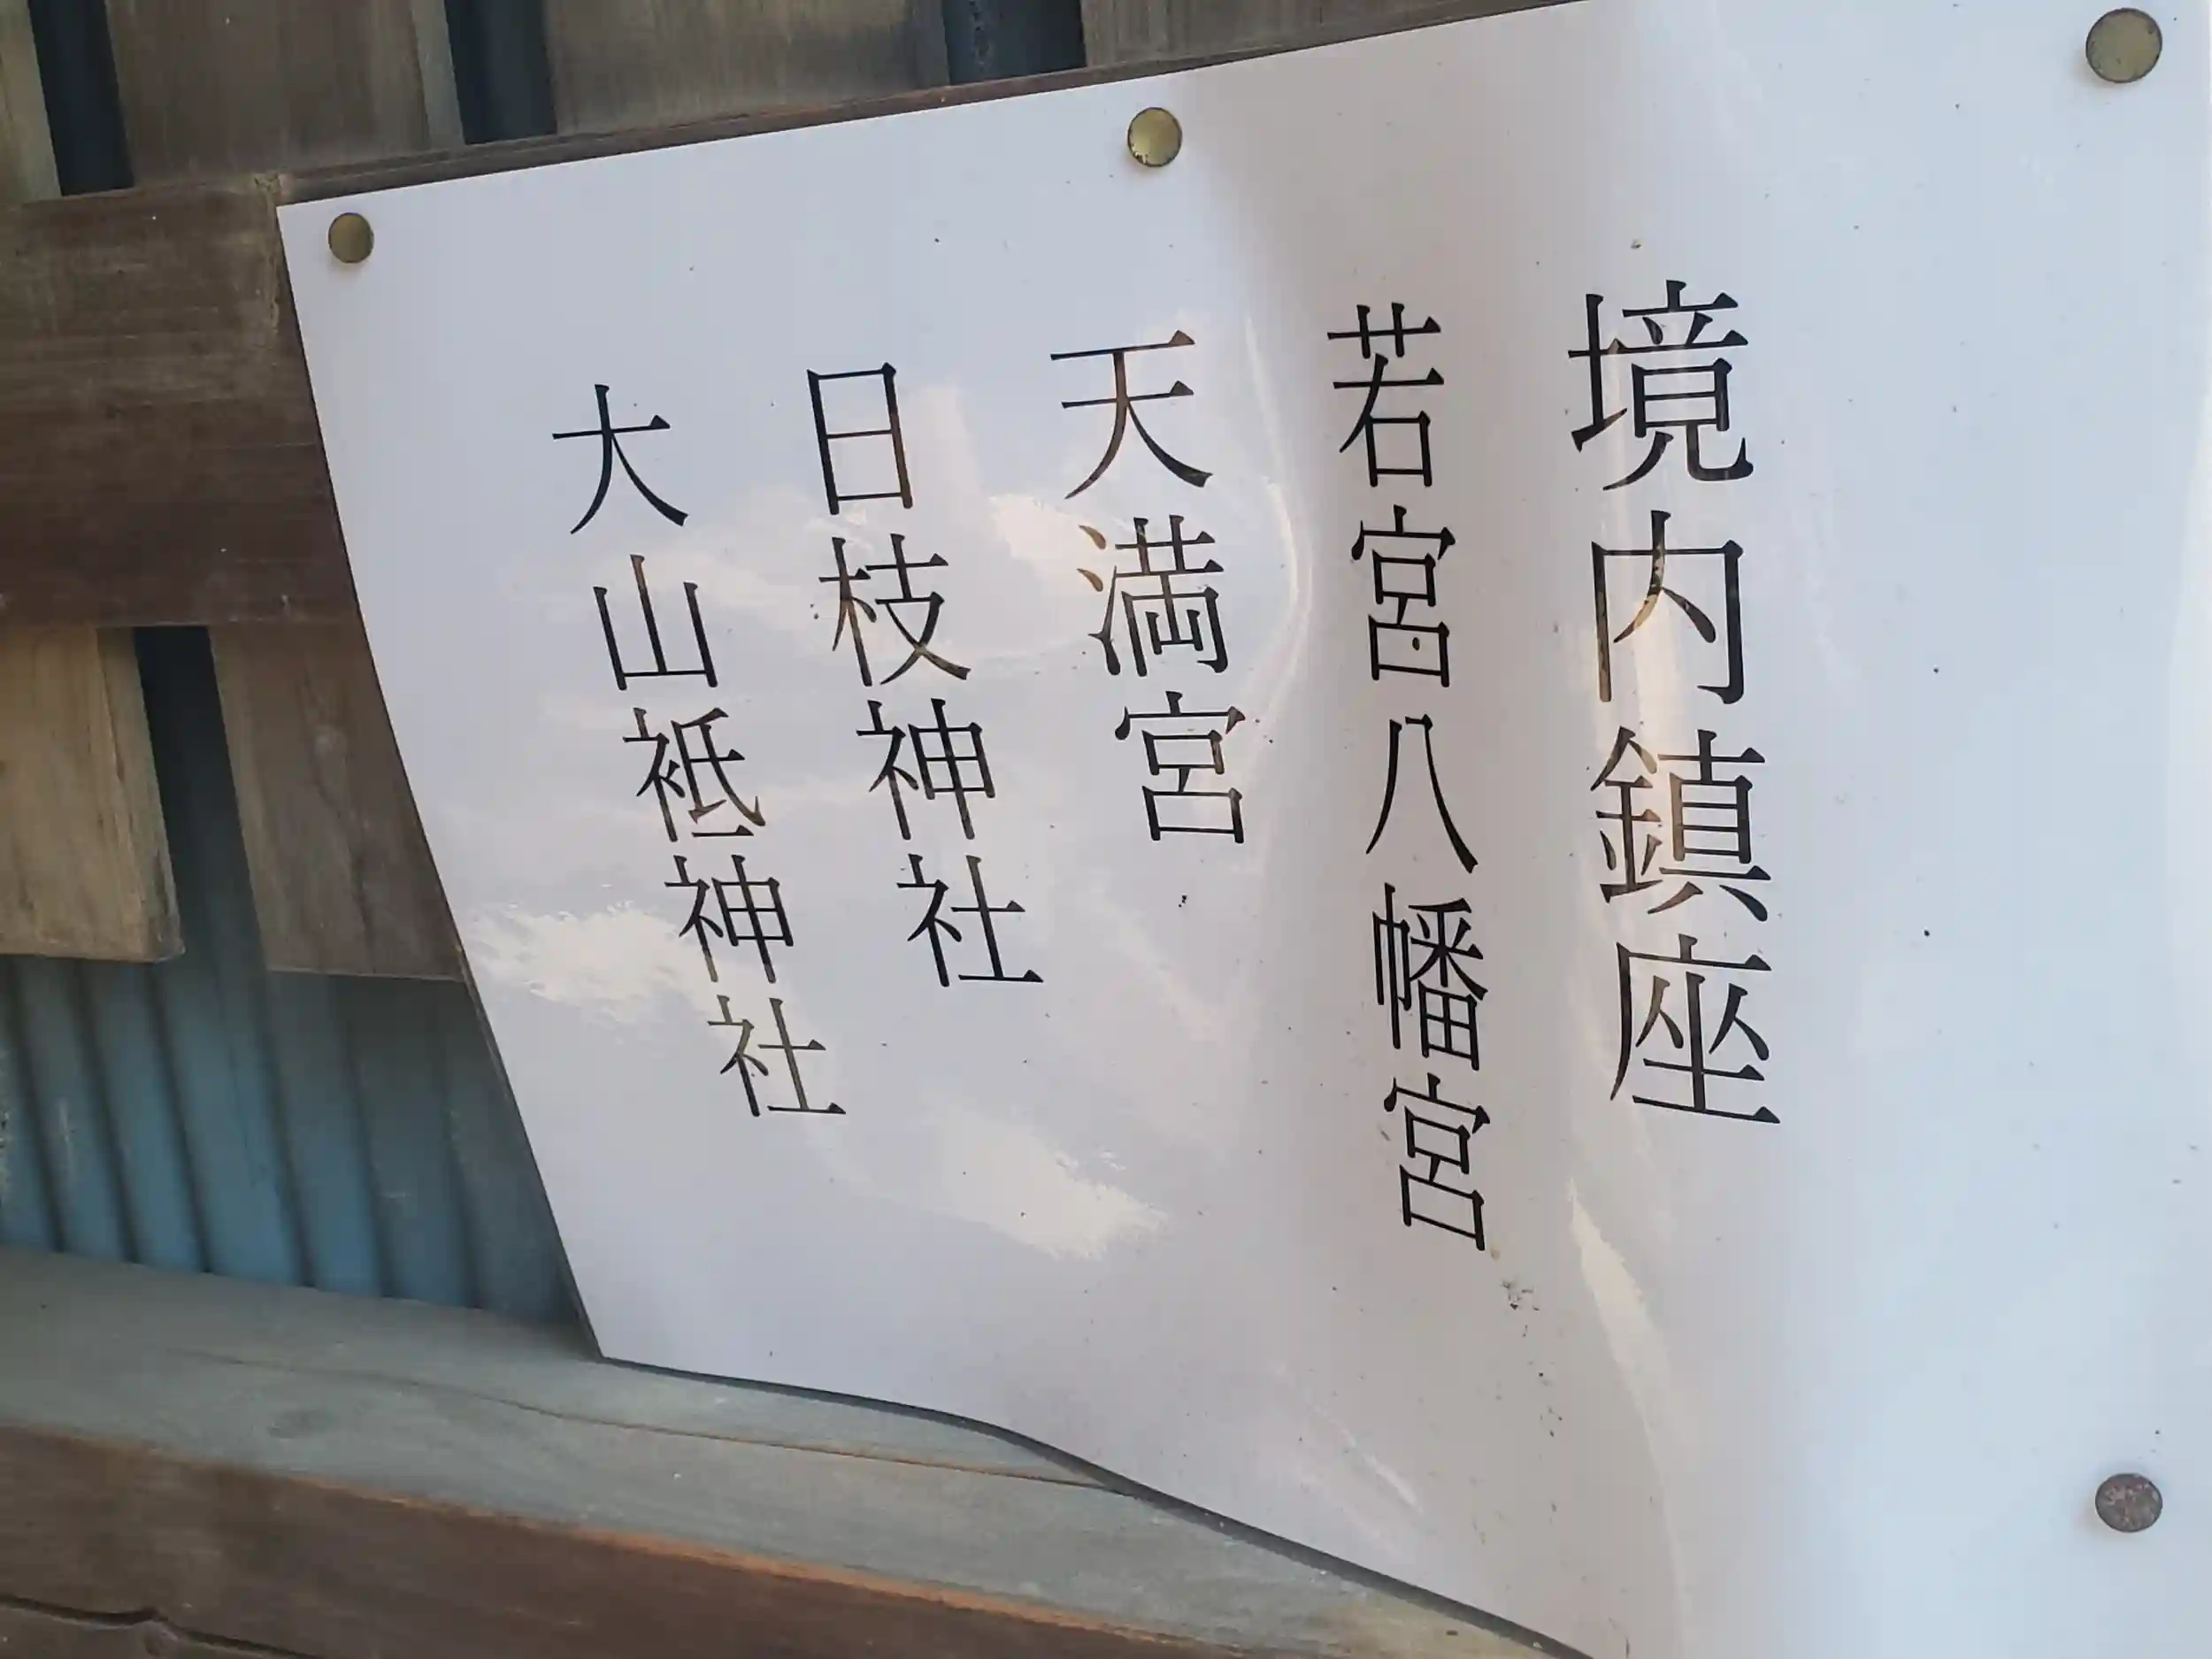 境内鎮座
若宮八幡宮
天満宮
日枝神社
大山祗神社